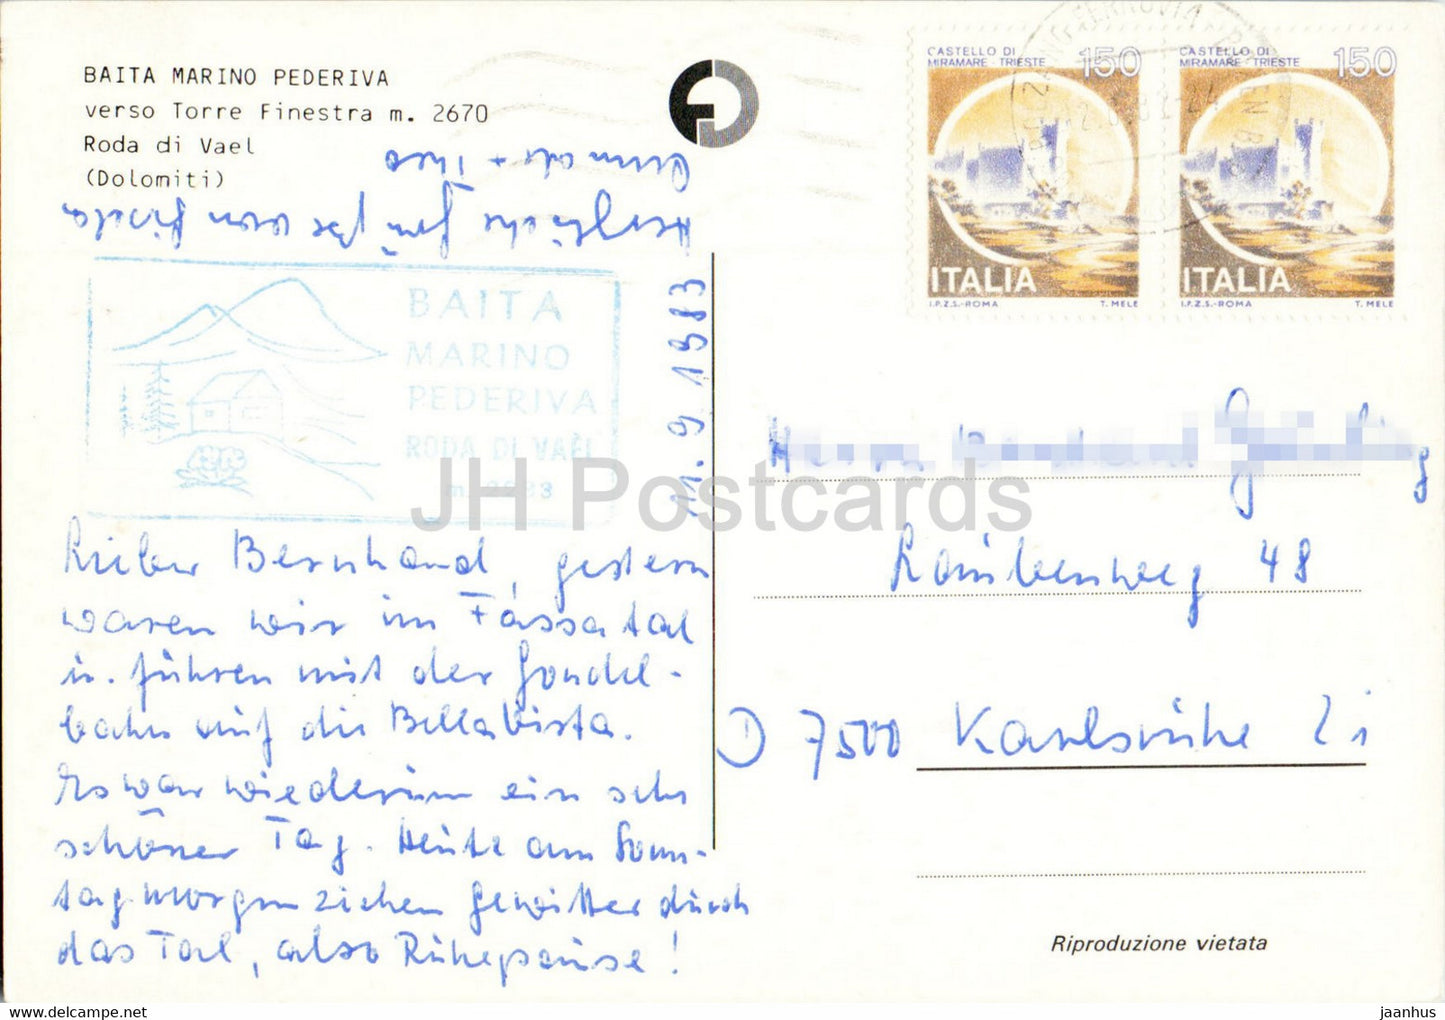 BAITA MARINO PEDERIVA
verso Torre Finestra m. 2670
Roda di Vael
(Dolomiti)
CASTELLO DI
MIRAMARE - TRIESTE
150
ITALIA
I.P.Z.S.-ROMA
T. MELE
CASTELLO DI
MIRAMARE - TRIESTE
150
ITALIA
I.P.Z.S.-ROMA
T. MELE
BAITA
MARINO
PEDERIVA
RODA DI VAÈL
11.9.1983
Lieber Bernhard, gestern
waren wir im Fassatal
u. fuhren mit der Gondel-
bahn auf die Bellavista.
Es war wiederum ein sehr
schöner Tag. Heute am Sonn-
tagmorgen ziehen Gewitter durch
das Tal, also Ruhepause!
Herzliche Grüße von Gisela
+ Theo
Herrn
48
D 7500 Karlsruhe 21
Riproduzione vietata
JH Postcards
www.delcampe.net
jaanhus